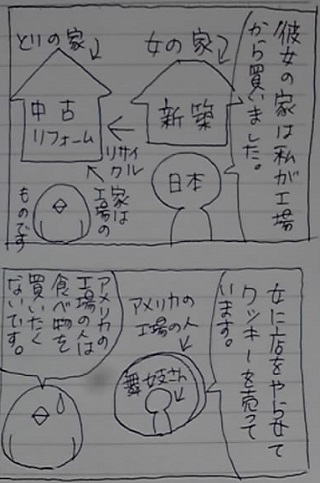 彼女の家は私が工場
から買いました。
女の家
新築
日本
とりの家
中古
リフォーム
リサイ
クル
家は
工場の
ものです
女に店をやらせて
クッキーを売って
います。
アメリカの
工場の人
舞妓さん
アメリカの
工場の人は
食べ物を
買いたく
ないです。